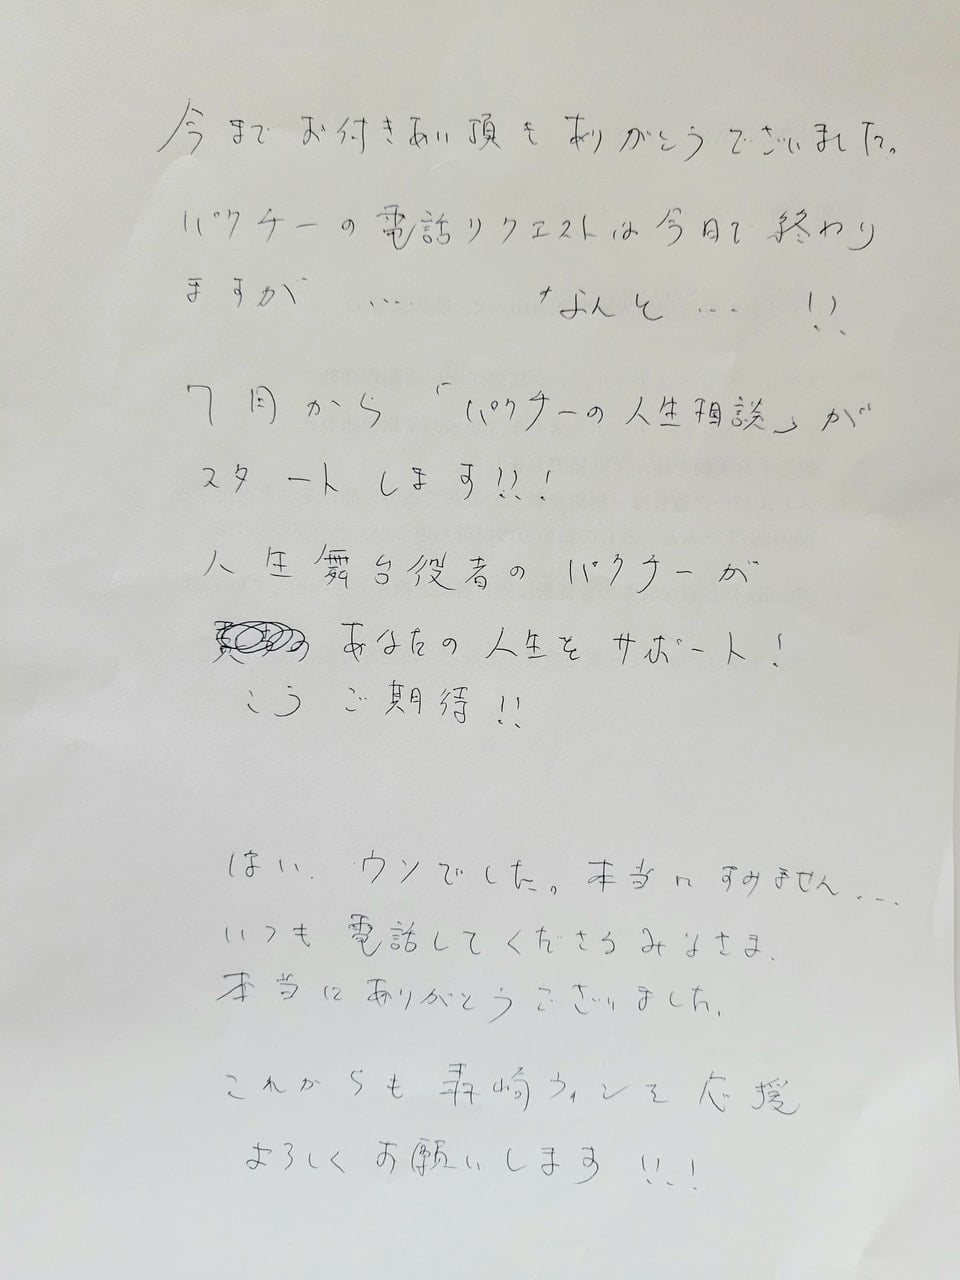 今までお付きあい頂きありがとうございました。
パクチーの電話リクエストは今日で終わり
ますが ... なんと ... !!
7月から「パクチーの人生相談」が
スタートします!!!
人生舞台役者のパクチーが
あなたの人生をサポート!
こうご期待!!
はい、ウソでした。本当にすみません...
いつも電話してくださるみなさま、
本当にありがとうございました。
これからも森崎ウィンを応援
よろしくお願いします!!!